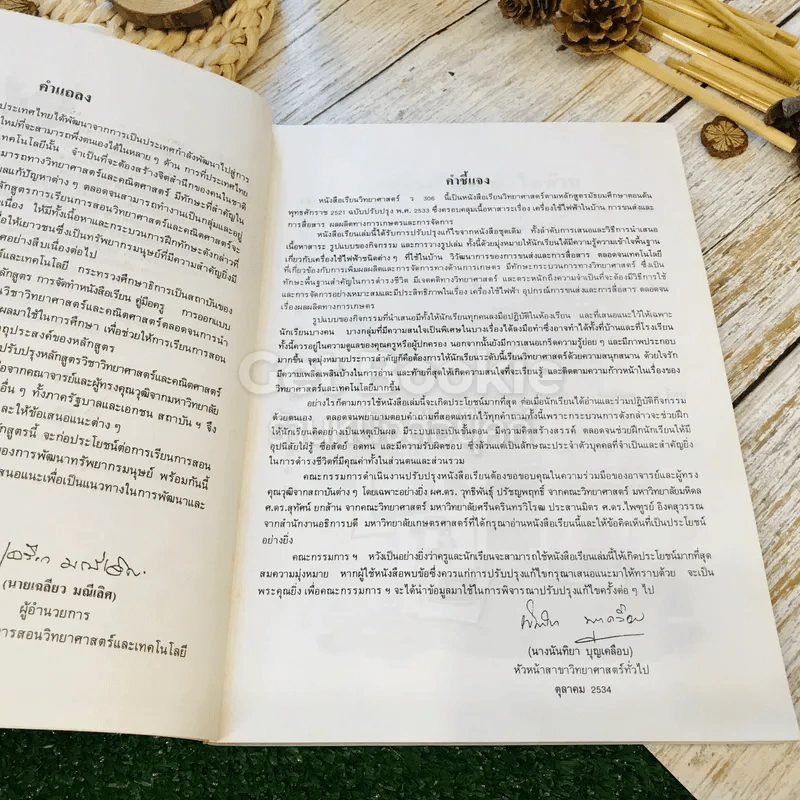 คำแถลง
ประเทศไทยได้พัฒนาจากการเป็นประเทศกำลังพัฒนาไปสู่การ
ใหม่ที่จะสามารถพึ่งตนเองได้ในหลาย ๆ ด้าน การที่ประเทศไทย
เทคโนโลยีนั้น จำเป็นที่จะต้องสร้างจิตสำนึกของคนในชาติ
มารถทางวิทยาศาสตร์และคณิตศาสตร์ มีทักษะที่สำคัญใน
แก้ปัญหาต่าง ๆ ตลอดจนสามารถทำงานเป็นกลุ่มและอยู่
หลักสูตรการเรียนการสอนวิทยาศาสตร์และคณิตศาสตร์จะ
เนื่อง ให้มีทั้งเนื้อหาและกระบวนการฝึกทักษะดังกล่าวที่
อให้เยาวชนซึ่งเป็นทรัพยากรมนุษย์ที่มีความสำคัญยิ่งมี
ศาสตร์อย่างสืบเนื่องต่อไป
ร์และเทคโนโลยี กระทรวงศึกษาธิการเป็นสถาบันของ
หลักสูตร การจัดทำหนังสือเรียน คู่มือครู การออกแบบ
นวิชาวิทยาศาสตร์และคณิตศาสตร์ตลอดจนการนำ
ผลมาใช้ในการศึกษา เพื่อช่วยให้การเรียนการสอน
ถุประสงค์ของหลักสูตร
ปรับปรุงหลักสูตรวิชาวิทยาศาสตร์และคณิตศาสตร์
อจากคณาจารย์และผู้ทรงคุณวุฒิจากมหาวิทยาลัย
อื่น ๆ ทั้งภาครัฐบาลและเอกชน สถาบัน ฯ จึง
และให้ข้อเสนอแนะต่าง ๆ
ักสูตรนี้ จะก่อประโยชน์ต่อการเรียนการสอน
องการพัฒนาทรัพยากรมนุษย์ พร้อมกันนี้
สนอแนะเพื่อเป็นแนวทางในการพัฒนาและ
(นายเฉลียว มณีเลิศ)
ผู้อำนวยการ
การสอนวิทยาศาสตร์และเทคโนโลยี
คำชี้แจง
หนังสือเรียนวิทยาศาสตร์ ว 306 นี้เป็นหนังสือเรียนวิทยาศาสตร์ตามหลักสูตรมัธยมศึกษาตอนต้น
พุทธศักราช 2521 ฉบับปรับปรุง พ.ศ. 2533 ซึ่งครอบคลุมเนื้อหาสาระเรื่อง เครื่องใช้ไฟฟ้าในบ้าน การขนส่งและ
การสื่อสาร ผลผลิตทางการเกษตรและการจัดการ
หนังสือเรียนเล่มนี้ได้รับการปรับปรุงแก้ไขจากหนังสือชุดเดิม ทั้งลำดับการเสนอและวิธีการนำเสนอ
เนื้อหาสาระ รูปแบบของกิจกรรม และการวางรูปเล่ม ทั้งนี้ด้วยมุ่งหมายให้นักเรียนได้มีความรู้ความเข้าใจพื้นฐาน
เกี่ยวกับเครื่องใช้ไฟฟ้าชนิดต่าง ๆ ที่ใช้ในบ้าน วิวัฒนาการของการขนส่งและการสื่อสาร ตลอดจนเทคโนโลยี
ที่เกี่ยวข้องกับการเพิ่มผลผลิตและการจัดการทางด้านการเกษตร มีทักษะกระบวนการทางวิทยาศาสตร์ ซึ่งเป็น
ทักษะพื้นฐานสำคัญในการดำรงชีวิต มีเจตคติทางวิทยาศาสตร์ และตระหนักถึงความจำเป็นที่จะต้องมีวิธีการใช้
และการจัดการอย่างเหมาะสมและมีประสิทธิภาพในเรื่อง เครื่องใช้ไฟฟ้า อุปกรณ์การขนส่งและการสื่อสาร ตลอดจน
เรื่องผลผลิตทางการเกษตร
รูปแบบของกิจกรรมที่นำเสนอมีทั้งให้นักเรียนทุกคนลงมือปฏิบัติในห้องเรียน และที่เสนอแนะไว้ให้เฉพาะ
นักเรียนบางคน บางกลุ่มที่มีความสนใจเป็นพิเศษในบางเรื่องได้ลงมือทำซึ่งอาจทำได้ทั้งที่บ้านและที่โรงเรียน
ทั้งนี้ควรอยู่ในความดูแลของคุณครูหรือผู้ปกครอง นอกจากนั้นยังมีการเสนอเกร็ดความรู้ย่อย ๆ และมีภาพประกอบ
มากขึ้น จุดมุ่งหมายประการสำคัญก็คือต้องการให้นักเรียนระดับนี้เรียนวิทยาศาสตร์ด้วยความสนุกสนาน ด้วยใจรัก
มีความเพลิดเพลินบ้างในการอ่าน และท้ายที่สุดให้เกิดความสนใจที่จะเรียนรู้ และติดตามความก้าวหน้าในเรื่องของ
วิทยาศาสตร์และเทคโนโลยีมากขึ้น
อย่างไรก็ตามการใช้หนังสือเล่มนี้จะเกิดประโยชน์มากที่สุด ต่อเมื่อนักเรียนได้อ่านและร่วมปฏิบัติกิจกรรม
ด้วยตนเอง ตลอดจนพยายามตอบคำถามที่สอดแทรกไว้ทุกคำถามทั้งนี้เพราะกระบวนการดังกล่าวจะช่วยฝึก
ให้นักเรียนคิดอย่างเป็นเหตุเป็นผล มีระบบและเป็นขั้นตอน มีความคิดสร้างสรรค์ ตลอดจนช่วยฝึกนักเรียนให้มี
อุปนิสัยใฝ่รู้ ซื่อสัตย์ อดทน และมีความรับผิดชอบ ซึ่งล้วนแต่เป็นลักษณะประจำตัวบุคคลที่จำเป็นและสำคัญยิ่ง
ในการดำรงชีวิตที่มีคุณค่าทั้งในส่วนตนและส่วนรวม
คณะกรรมการดำเนินงานปรับปรุงหนังสือเรียนต้องขอขอบคุณในความร่วมมือของอาจารย์และผู้ทรง
คุณวุฒิจากสถาบันต่าง ๆ โดยเฉพาะอย่างยิ่ง ผศ.ดร. วุทธิพันธุ์ ปรัชญพฤทธิ์ จากคณะวิทยาศาสตร์ มหาวิทยาลัยมหิดล
ศ.ดร.สุทัศน์ ยกส้าน จากคณะวิทยาศาสตร์ มหาวิทยาลัยศรีนครินทรวิโรฒ ประสานมิตร ศ.ดร.ไพฑูรย์ อิงคสุวรรณ
จากสำนักงานอธิการบดี มหาวิทยาลัยเกษตรศาสตร์ที่ได้กรุณาอ่านหนังสือเรียนนี้และให้ข้อคิดเห็นที่เป็นประโยชน์
อย่างยิ่ง
คณะกรรมการ ฯ หวังเป็นอย่างยิ่งว่าครูและนักเรียนจะสามารถใช้หนังสือเรียนเล่มนี้ให้เกิดประโยชน์มากที่สุด
สมความมุ่งหมาย หากผู้ใช้หนังสือพบข้อซึ่งควรแก่การปรับปรุงแก้ไขกรุณาเสนอแนะมาให้ทราบด้วย จะเป็น
พระคุณยิ่ง เพื่อคณะกรรมการ ฯ จะได้นำข้อมูลมาใช้ในการพิจารณาปรับปรุงแก้ไขครั้งต่อ ๆ ไป
(นางนันทิยา บุญเคลือบ)
หัวหน้าสาขาวิทยาศาสตร์ทั่วไป
ตุลาคม 2534